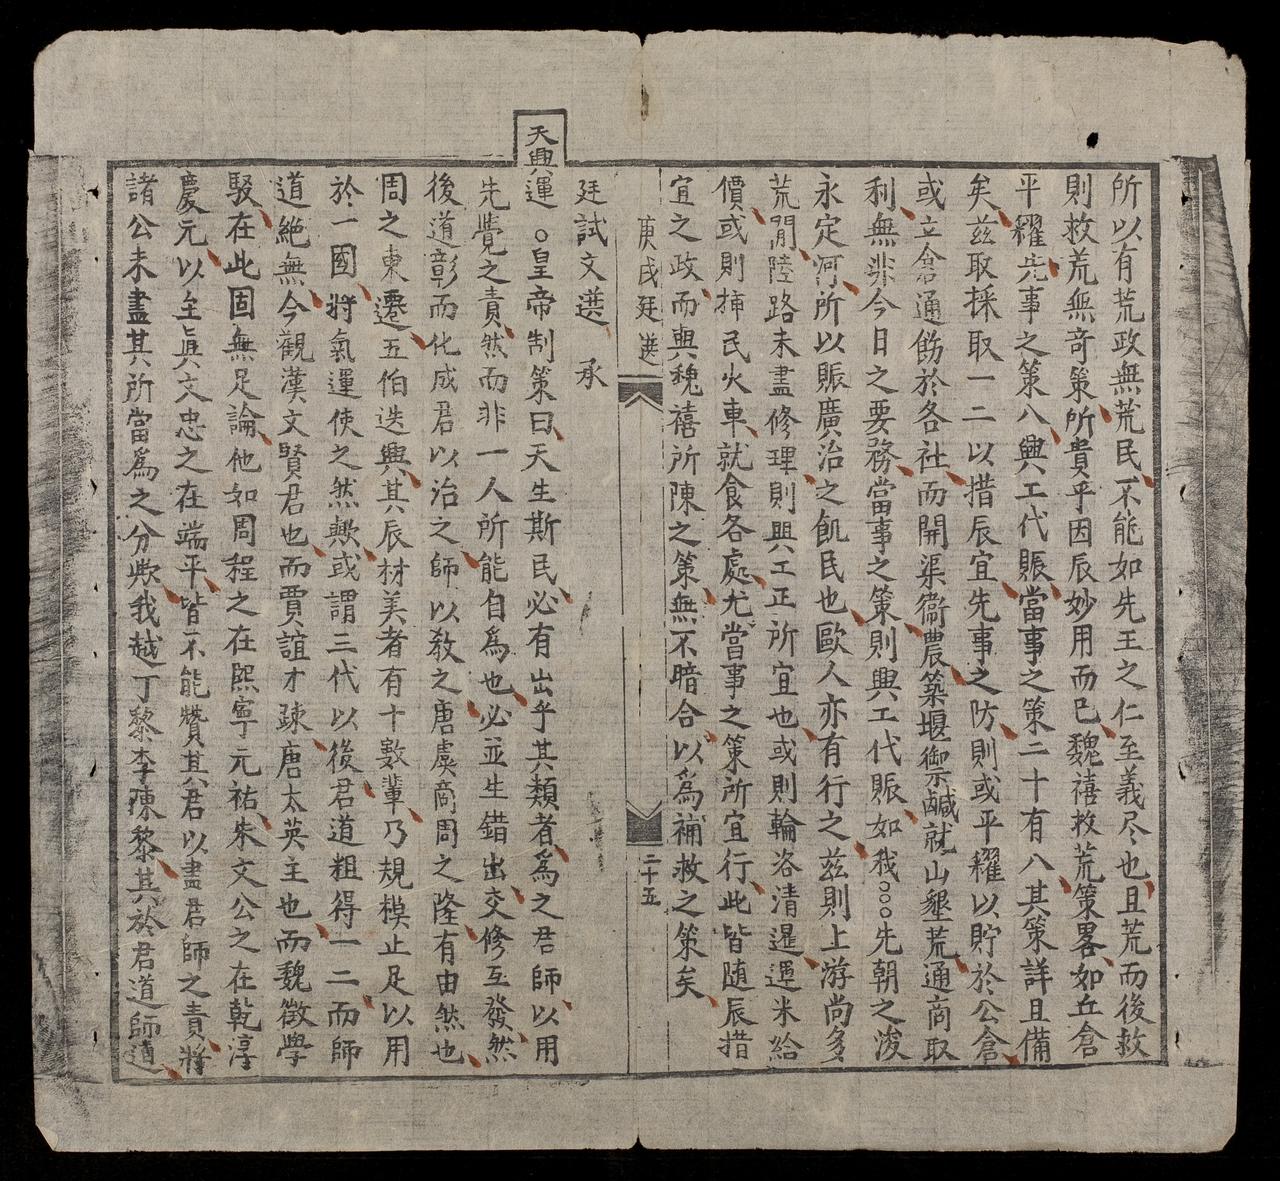 所以有荒政無荒民不能如先王之仁至義尽也且荒而後救
則救荒無奇策所貴乎因辰妙用而已魏禧救荒策畧如丘倉
平糶先事之策八興工代賑當事之策二十有八其策詳且備
矣茲取採取一二以措辰宜先事之防則或平糶以貯於公倉
或立倉通飭於各社而開渠衞農築堰御鹹就山墾荒通商取
利無非今日之要務當事之策則興工代賑如我○○○先朝之浚
永定河所以賑廣治之飢民也歐人亦有行之茲則上游尚多
荒閒陸路未盡修理則興工正所宜也或則輪洛清暹運米給
價或則揷民火車就食各處尤當事之策所宜行此皆随辰措
宜之政而與魏禧所陳之策無不暗合以為補救之策矣
庚戌廷選
二十五
廷試文選 承
天興運○皇帝制策曰天生斯民必有出乎其類者為之君師以用
先覺之責然而非一人所能自為也必並生錯出交修互發然
後道彰而化成君以治之師以敎之唐虞商周之隆有由然也
周之東遷五伯迭興其辰材美者有十數輩乃規模止足以用
於一國將氣運使之然歟或謂三代以後君道粗得一二而師
道絶無今觀漢文賢君也而賈誼才疎唐太英主也而魏徵學
駁在此固無足論他如周程之在熙寧元祐朱文公之在乾淳
慶元以至眞文忠之在端平皆不能贊其君以盡君師之責將
諸公未盡其所當為之分歟我越丁黎李陳黎其於君道師道